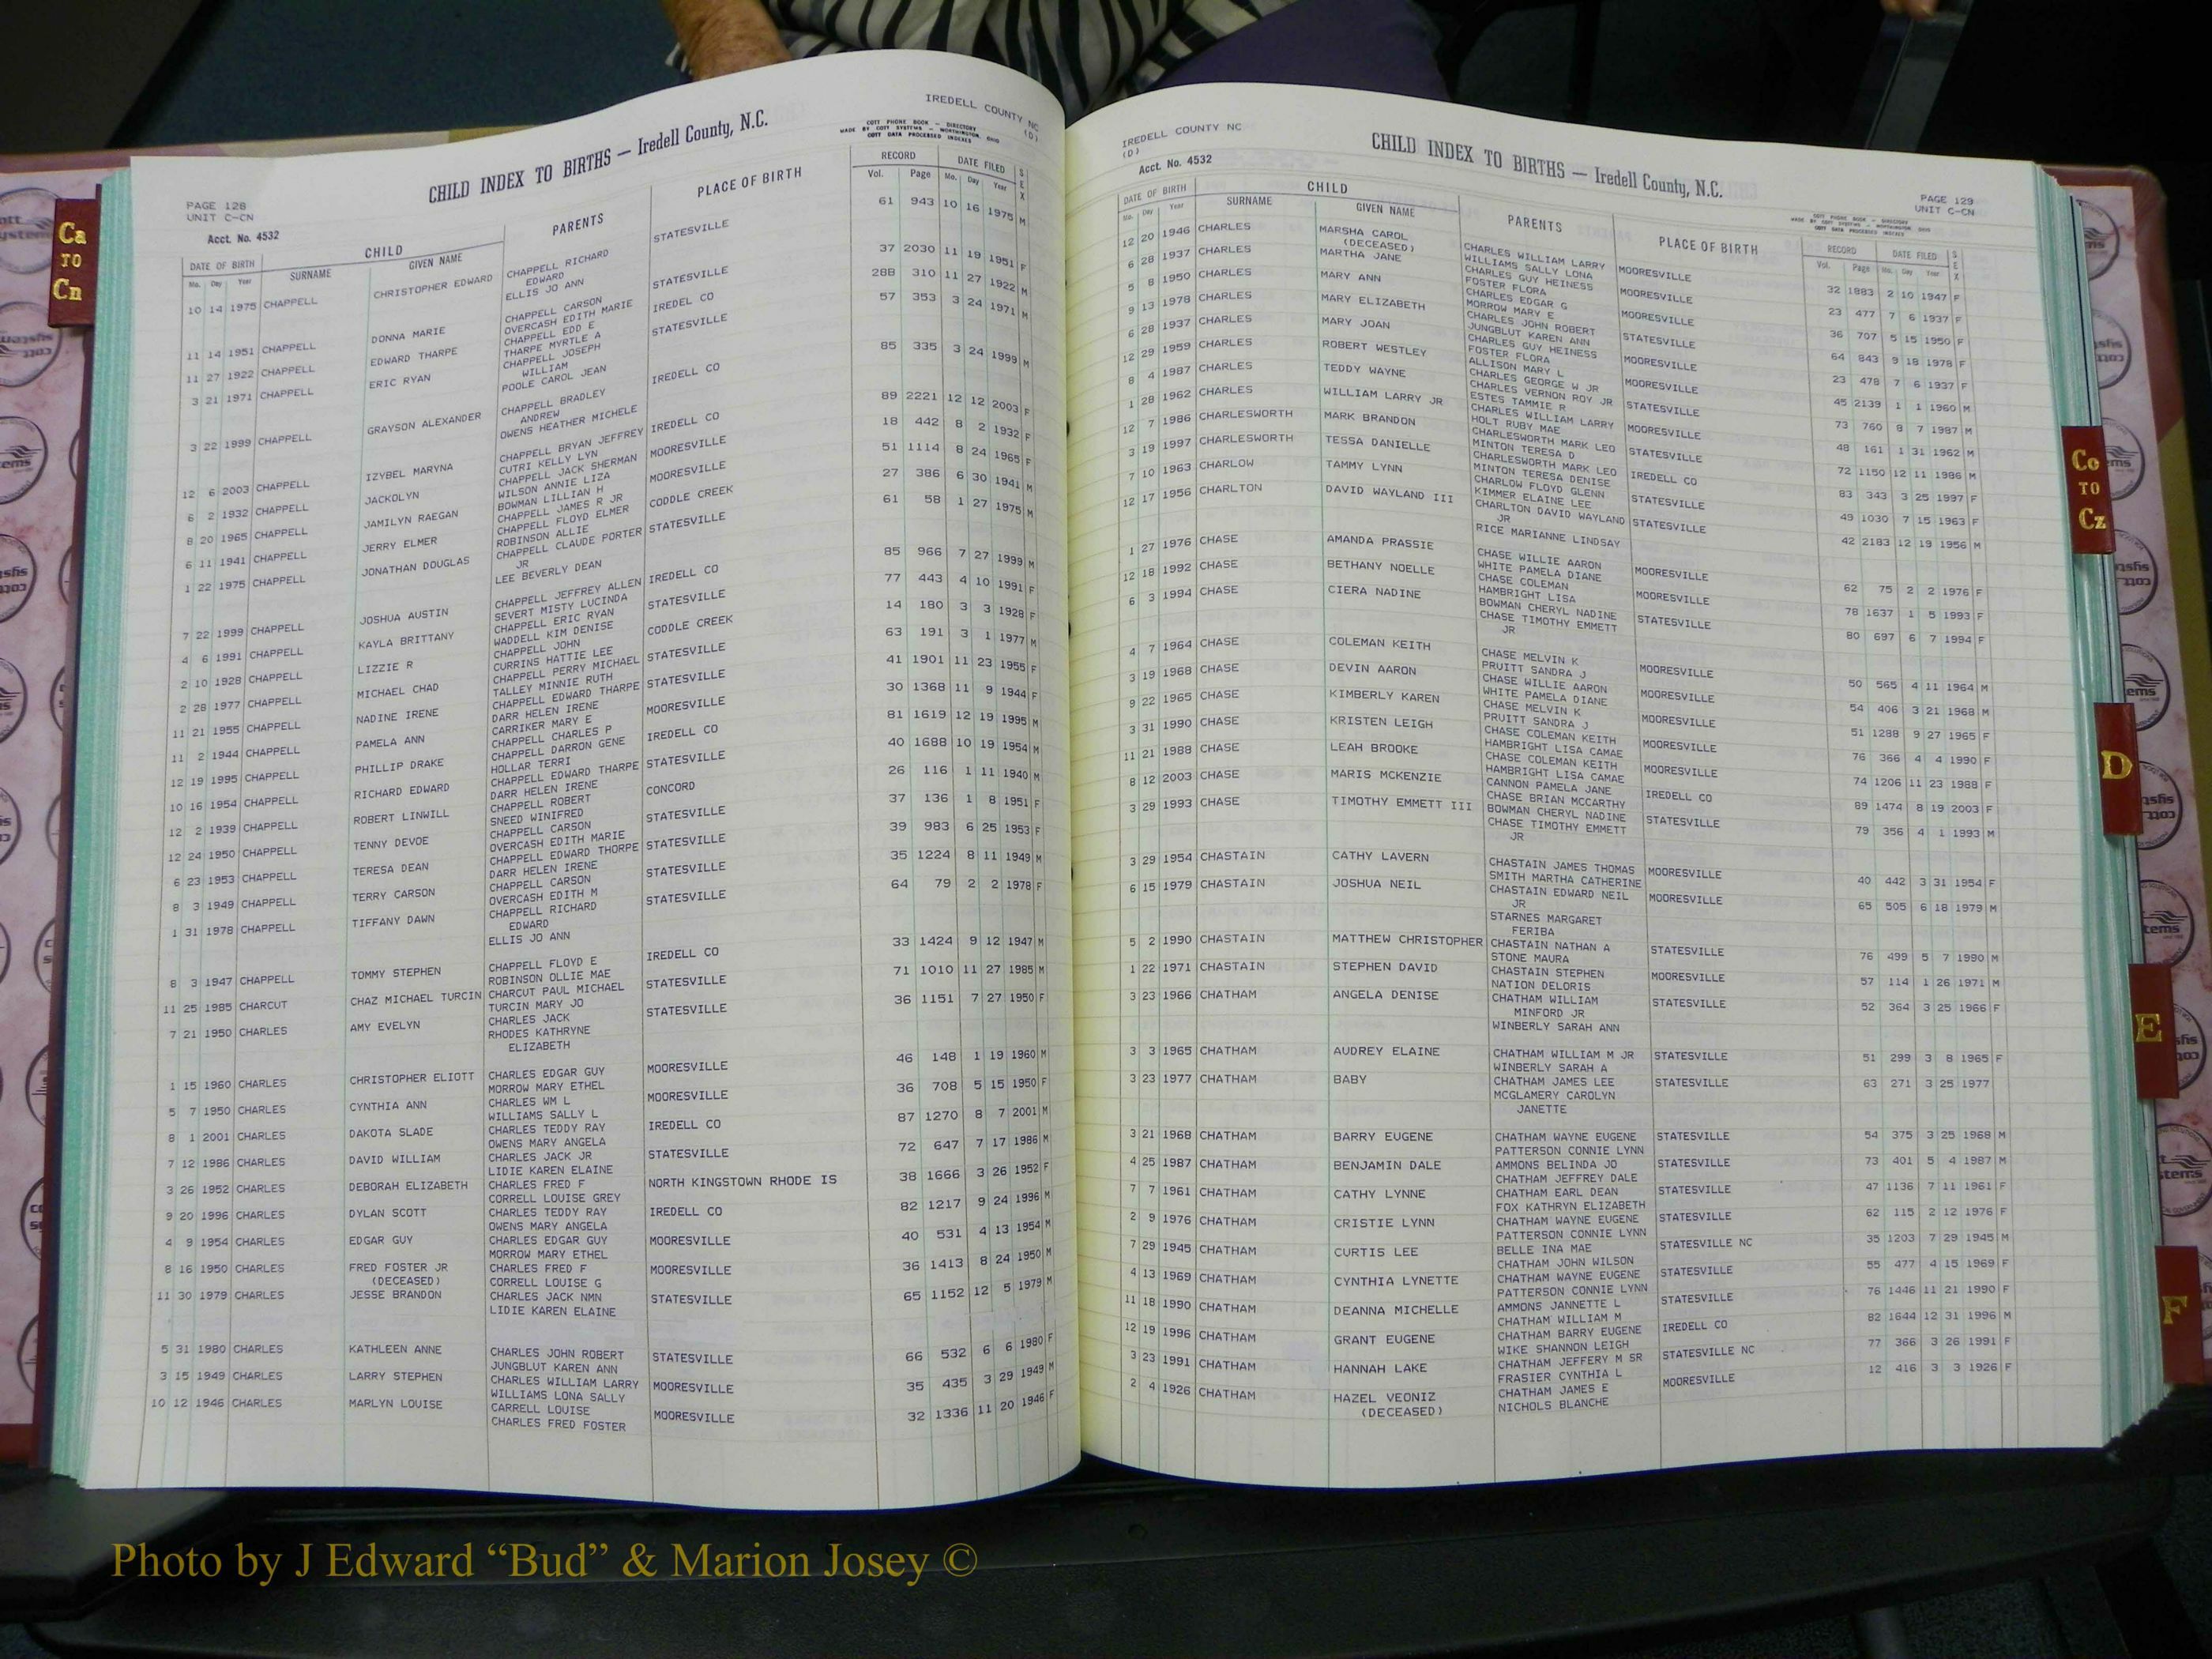 IREDELL COUNTY NC
(D)
CHILD INDEX TO BIRTHS — Iredell County, N.C.
COTT PHONE BOOK — DIRECTORY
MADE BY COTT SYSTEMS — WORTHINGTON, OHIO
COTT DATA PROCESSED INDEXES
PAGE 128
UNIT C-CN
Acct. No. 4532
DATE OF BIRTH CHILD PARENTS PLACE OF BIRTH RECORD DATE FILED SEX
Mo. Day Year SURNAME GIVEN NAME Vol. Page Mo. Day Year
10 14 1975 CHAPPELL CHRISTOPHER EDWARD CHAPPELL RICHARD STATESVILLE 61 943 10 16 1975 M
EDWARD
ELLIS JO ANN
11 14 1951 CHAPPELL DONNA MARIE CHAPPELL CARSON STATESVILLE 37 2030 11 19 1951 F
OVERCASH EDITH MARIE
11 27 1922 CHAPPELL EDWARD THARPE CHAPPELL EDD E IREDEL CO 288 310 11 27 1922 M
THARPE MYRTLE A
3 21 1971 CHAPPELL ERIC RYAN CHAPPELL JOSEPH STATESVILLE 57 353 3 24 1971 M
WILLIAM
POOLE CAROL JEAN
3 22 1999 CHAPPELL GRAYSON ALEXANDER CHAPPELL BRADLEY IREDELL CO 85 335 3 24 1999 M
ANDREW
OWENS HEATHER MICHELE
12 6 2003 CHAPPELL IZYBEL MARYNA CHAPPELL BRYAN JEFFREY IREDELL CO 89 2221 12 12 2003 F
CUTRI KELLY LYN
6 2 1932 CHAPPELL JACKOLYN CHAPPELL JACK SHERMAN MOORESVILLE 18 442 8 2 1932 F
WILSON ANNIE LIZA
8 20 1965 CHAPPELL JAMILYN RAEGAN BOWMAN LILLIAN H MOORESVILLE 51 1114 8 24 1965 F
CHAPPELL JAMES R JR
6 11 1941 CHAPPELL JERRY ELMER CHAPPELL FLOYD ELMER CODDLE CREEK 27 386 6 30 1941 M
ROBINSON ALLIE
1 22 1975 CHAPPELL JONATHAN DOUGLAS CHAPPELL CLAUDE PORTER STATESVILLE 61 58 1 27 1975 M
JR
LEE BEVERLY DEAN
7 22 1999 CHAPPELL JOSHUA AUSTIN CHAPPELL JEFFREY ALLEN IREDELL CO 85 966 7 27 1999 M
SEVERT MISTY LUCINDA
4 6 1991 CHAPPELL KAYLA BRITTANY CHAPPELL ERIC RYAN STATESVILLE 77 443 4 10 1991 F
WADDELL KIM DENISE
2 10 1928 CHAPPELL LIZZIE R CHAPPELL JOHN CODDLE CREEK 14 180 3 3 1928 F
CURRINS HATTIE LEE
2 28 1977 CHAPPELL MICHAEL CHAD CHAPPELL PERRY MICHAEL STATESVILLE 63 191 3 1 1977 M
TALLEY MINNIE RUTH
11 21 1955 CHAPPELL NADINE IRENE CHAPPELL EDWARD THARPE STATESVILLE 41 1901 11 23 1955 F
DARR HELEN IRENE
11 2 1944 CHAPPELL PAMELA ANN CARRIKER MARY E MOORESVILLE 30 1368 11 9 1944 F
CHAPPELL CHARLES P
12 19 1995 CHAPPELL PHILLIP DRAKE CHAPPELL DARRON GENE IREDELL CO 81 1619 12 19 1995 M
HOLLAR TERRI
10 16 1954 CHAPPELL RICHARD EDWARD CHAPPELL EDWARD THARPE STATESVILLE 40 1688 10 19 1954 M
DARR HELEN IRENE
12 2 1939 CHAPPELL ROBERT LINWILL CHAPPELL ROBERT CONCORD 26 116 1 11 1940 M
SNEED WINIFRED
12 24 1950 CHAPPELL TENNY DEVOE CHAPPELL CARSON STATESVILLE 37 136 1 8 1951 F
OVERCASH EDITH MARIE
6 23 1953 CHAPPELL TERESA DEAN CHAPPELL EDWARD THORPE STATESVILLE 39 983 6 25 1953 F
DARR HELEN IRENE
8 3 1949 CHAPPELL TERRY CARSON CHAPPELL CARSON STATESVILLE 35 1224 8 11 1949 M
OVERCASH EDITH M
1 31 1978 CHAPPELL TIFFANY DAWN CHAPPELL RICHARD STATESVILLE 64 79 2 2 1978 F
EDWARD
ELLIS JO ANN
8 3 1947 CHAPPELL TOMMY STEPHEN CHAPPELL FLOYD E IREDELL CO 33 1424 9 12 1947 M
ROBINSON OLLIE MAE
11 25 1985 CHARCUT CHAZ MICHAEL TURCIN CHARCUT PAUL MICHAEL STATESVILLE 71 1010 11 27 1985 M
TURCIN MARY JO
7 21 1950 CHARLES AMY EVELYN CHARLES JACK STATESVILLE 36 1151 7 27 1950 F
RHODES KATHRYNE
ELIZABETH
1 15 1960 CHARLES CHRISTOPHER ELIOTT CHARLES EDGAR GUY MOORESVILLE 46 148 1 19 1960 M
MORROW MARY ETHEL
5 7 1950 CHARLES CYNTHIA ANN CHARLES WM L MOORESVILLE 36 708 5 15 1950 F
WILLIAMS SALLY L
8 1 2001 CHARLES DAKOTA SLADE CHARLES TEDDY RAY IREDELL CO 87 1270 8 7 2001 M
OWENS MARY ANGELA
7 12 1986 CHARLES DAVID WILLIAM CHARLES JACK JR STATESVILLE 72 647 7 17 1986 M
LIDIE KAREN ELAINE
3 26 1952 CHARLES DEBORAH ELIZABETH CHARLES FRED F NORTH KINGSTOWN RHODE IS 38 1666 3 26 1952 F
CORRELL LOUISE GREY
9 20 1996 CHARLES DYLAN SCOTT CHARLES TEDDY RAY IREDELL CO 82 1217 9 24 1996 M
OWENS MARY ANGELA
4 9 1954 CHARLES EDGAR GUY CHARLES EDGAR GUY MOORESVILLE 40 531 4 13 1954 M
MORROW MARY ETHEL
8 16 1950 CHARLES FRED FOSTER JR CHARLES FRED F MOORESVILLE 36 1413 8 24 1950 M
(DECEASED) CORRELL LOUISE G
11 30 1979 CHARLES JESSE BRANDON CHARLES JACK NMN STATESVILLE 65 1152 12 5 1979 M
LIDIE KAREN ELAINE
5 31 1980 CHARLES KATHLEEN ANNE CHARLES JOHN ROBERT STATESVILLE 66 532 6 6 1980 F
JUNGBLUT KAREN ANN
3 15 1949 CHARLES LARRY STEPHEN CHARLES WILLIAM LARRY MOORESVILLE 35 435 3 29 1949 M
WILLIAMS LONA SALLY
10 12 1946 CHARLES MARLYN LOUISE CARRELL LOUISE MOORESVILLE 32 1336 11 20 1946 F
CHARLES FRED FOSTER
IREDELL COUNTY NC
(D)
Acct. No. 4532
CHILD INDEX TO BIRTHS — Iredell County, N.C.
PAGE 129
UNIT C-CN
COTT PHONE BOOK — DIRECTORY
MADE BY COTT SYSTEMS — WORTHINGTON, OHIO
COTT DATA PROCESSED INDEXES
DATE OF BIRTH CHILD PARENTS PLACE OF BIRTH RECORD DATE FILED SEX
Mo. Day Year SURNAME GIVEN NAME Vol. Page Mo. Day Year
12 20 1946 CHARLES MARSHA CAROL CHARLES WILLIAM LARRY MOORESVILLE 32 1883 2 10 1947 F
(DECEASED) WILLIAMS SALLY LONA
6 28 1937 CHARLES MARTHA JANE CHARLES GUY HEINESS MOORESVILLE 23 477 7 6 1937 F
FOSTER FLORA
5 8 1950 CHARLES MARY ANN CHARLES EDGAR G MOORESVILLE 36 707 5 15 1950 F
MORROW MARY E
9 13 1978 CHARLES MARY ELIZABETH CHARLES JOHN ROBERT STATESVILLE 64 843 9 18 1978 F
JUNGBLUT KAREN ANN
6 28 1937 CHARLES MARY JOAN CHARLES GUY HEINESS MOORESVILLE 23 478 7 6 1937 F
FOSTER FLORA
12 29 1959 CHARLES ROBERT WESTLEY ALLISON MARY L MOORESVILLE 45 2139 1 1 1960 M
CHARLES GEORGE W JR
8 4 1987 CHARLES TEDDY WAYNE CHARLES VERNON ROY JR STATESVILLE 73 760 8 7 1987 M
ESTES TAMMIE R
1 28 1962 CHARLES WILLIAM LARRY JR CHARLES WILLIAM LARRY MOORESVILLE 48 161 1 31 1962 M
HOLT RUBY MAE
12 7 1986 CHARLESWORTH MARK BRANDON CHARLESWORTH MARK LEO STATESVILLE 72 1150 12 11 1986 M
MINTON TERESA D
3 19 1997 CHARLESWORTH TESSA DANIELLE CHARLESWORTH MARK LEO IREDELL CO 83 343 3 25 1997 F
MINTON TERESA DENISE
7 10 1963 CHARLOW TAMMY LYNN CHARLOW FLOYD GLENN STATESVILLE 49 1030 7 15 1963 F
KIMMER ELAINE LEE
12 17 1956 CHARLTON DAVID WAYLAND III CHARLTON DAVID WAYLAND STATESVILLE 42 2183 12 19 1956 M
JR
RICE MARIANNE LINDSAY
1 27 1976 CHASE AMANDA PRASSIE CHASE WILLIE AARON MOORESVILLE 62 75 2 2 1976 F
WHITE PAMELA DIANE
12 18 1992 CHASE BETHANY NOELLE CHASE COLEMAN MOORESVILLE 78 1637 1 5 1993 F
HAMBRIGHT LISA
6 3 1994 CHASE CIERA NADINE BOWMAN CHERYL NADINE STATESVILLE 80 697 6 7 1994 F
CHASE TIMOTHY EMMETT
JR
4 7 1964 CHASE COLEMAN KEITH CHASE MELVIN K MOORESVILLE 50 565 4 11 1964 M
PRUITT SANDRA J
3 19 1968 CHASE DEVIN AARON CHASE WILLIE AARON MOORESVILLE 54 406 3 21 1968 M
WHITE PAMELA DIANE
9 22 1965 CHASE KIMBERLY KAREN CHASE MELVIN K MOORESVILLE 51 1288 9 27 1965 F
PRUITT SANDRA J
3 31 1990 CHASE KRISTEN LEIGH CHASE COLEMAN KEITH MOORESVILLE 76 366 4 4 1990 F
HAMBRIGHT LISA CAMAE
11 21 1988 CHASE LEAH BROOKE CHASE COLEMAN KEITH MOORESVILLE 74 1206 11 23 1988 F
HAMBRIGHT LISA CAMAE
8 12 2003 CHASE MARIS MCKENZIE CANNON PAMELA JANE IREDELL CO 89 1474 8 19 2003 F
CHASE BRIAN MCCARTHY
3 29 1993 CHASE TIMOTHY EMMETT III BOWMAN CHERYL NADINE STATESVILLE 79 356 4 1 1993 M
CHASE TIMOTHY EMMETT
JR
3 29 1954 CHASTAIN CATHY LAVERN CHASTAIN JAMES THOMAS MOORESVILLE 40 442 3 31 1954 F
SMITH MARTHA CATHERINE
6 15 1979 CHASTAIN JOSHUA NEIL CHASTAIN EDWARD NEIL MOORESVILLE 65 505 6 18 1979 M
JR
STARNES MARGARET
FERIBA
5 2 1990 CHASTAIN MATTHEW CHRISTOPHER CHASTAIN NATHAN A STATESVILLE 76 499 5 7 1990 M
STONE MAURA
1 22 1971 CHASTAIN STEPHEN DAVID CHASTAIN STEPHEN MOORESVILLE 57 114 1 26 1971 M
NATION DELORIS
3 23 1966 CHATHAM ANGELA DENISE CHATHAM WILLIAM STATESVILLE 52 364 3 25 1966 F
MINFORD JR
WINBERLY SARAH ANN
3 3 1965 CHATHAM AUDREY ELAINE CHATHAM WILLIAM M JR STATESVILLE 51 299 3 8 1965 F
WINBERLY SARAH A
3 23 1977 CHATHAM BABY CHATHAM JAMES LEE STATESVILLE 63 271 3 25 1977
MCGLAMERY CAROLYN
JANETTE
3 21 1968 CHATHAM BARRY EUGENE CHATHAM WAYNE EUGENE STATESVILLE 54 375 3 25 1968 M
PATTERSON CONNIE LYNN
4 25 1987 CHATHAM BENJAMIN DALE AMMONS BELINDA JO STATESVILLE 73 401 5 4 1987 M
CHATHAM JEFFREY DALE
7 7 1961 CHATHAM CATHY LYNNE CHATHAM EARL DEAN STATESVILLE 47 1136 7 11 1961 F
FOX KATHRYN ELIZABETH
2 9 1976 CHATHAM CRISTIE LYNN CHATHAM WAYNE EUGENE STATESVILLE 62 115 2 12 1976 F
PATTERSON CONNIE LYNN
7 29 1945 CHATHAM CURTIS LEE BELLE INA MAE STATESVILLE NC 35 1203 7 29 1945 M
CHATHAM JOHN WILSON
4 13 1969 CHATHAM CYNTHIA LYNETTE CHATHAM WAYNE EUGENE STATESVILLE 55 477 4 15 1969 F
PATTERSON CONNIE LYNN
11 18 1990 CHATHAM DEANNA MICHELLE AMMONS JANNETTE L STATESVILLE 76 1446 11 21 1990 F
CHATHAM WILLIAM M
12 19 1996 CHATHAM GRANT EUGENE CHATHAM BARRY EUGENE IREDELL CO 82 1644 12 31 1996 M
WIKE SHANNON LEIGH
3 23 1991 CHATHAM HANNAH LAKE CHATHAM JEFFERY M SR STATESVILLE NC 77 366 3 26 1991 F
FRASIER CYNTHIA L
2 4 1926 CHATHAM HAZEL VEONIZ CHATHAM JAMES E MOORESVILLE 12 416 3 3 1926 F
(DECEASED) NICHOLS BLANCHE
Ca
TO
Cn
Co
TO
Cz
D
E
F
Photo by J Edward “Bud” & Marion Josey ©